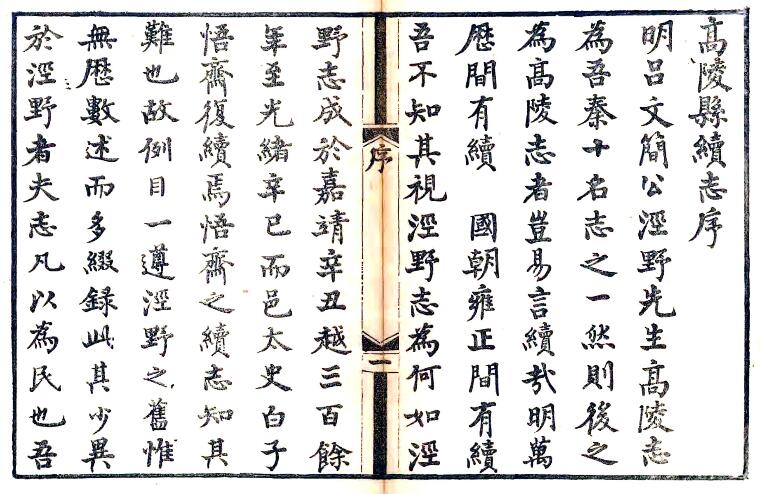 高陵縣續志序
明呂文簡公涇野先生高陵志
為吾秦十名志之一然則後之
為高陵志者豈易言續哉明萬
歷間有續　國朝雍正間有續
吾不知其視涇野志為何如涇
序
一
野志成於嘉靖辛丑越三百餘
年至光緒辛巳而邑太史白子
悟齋復續焉悟齋之續志知其
難也故例目一遵涇野之舊惟
無歷數述而多綴錄此其少異
於涇野者夫志凡以為民也吾